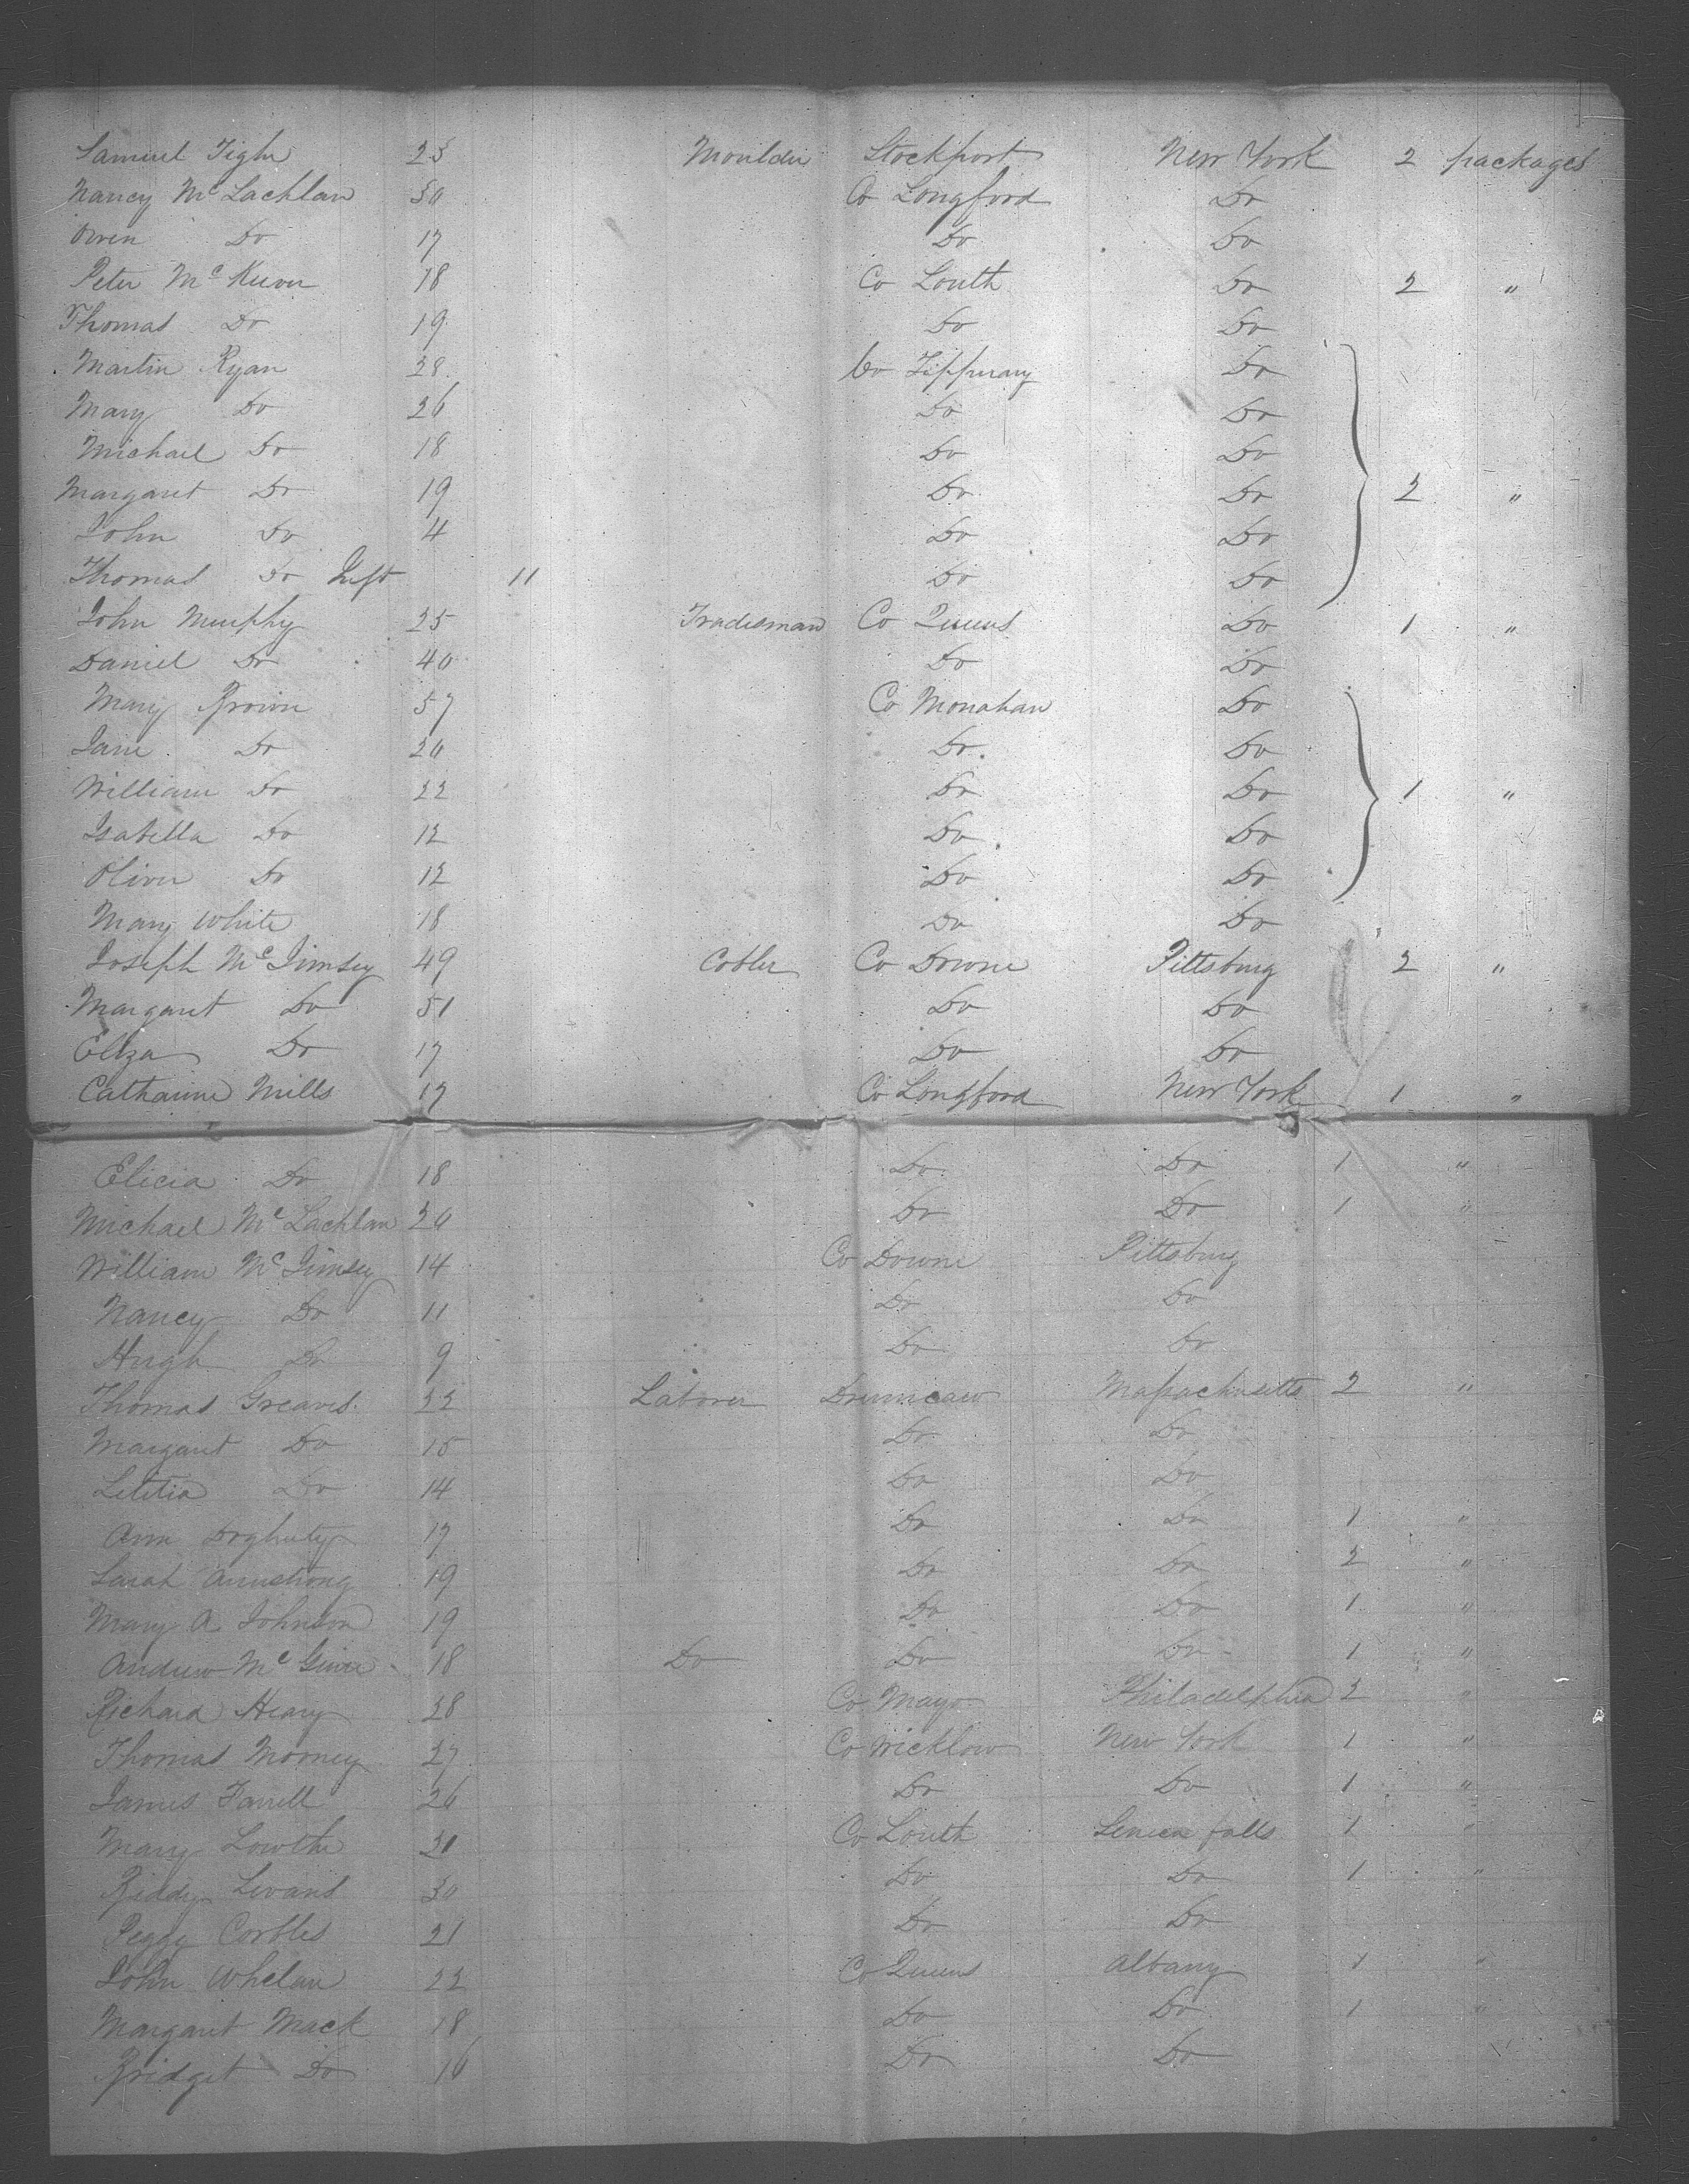 Samuel Tighe 25 Moulder Stockport New York 2 packages
Nancy McLachlan 50 Co Longford Do
Owen Do 17 Do Do
Peter McKeever 18 Co Louth Do 2 "
Thomas Do 19 Do Do
Martin Ryan 28 Co Tipperary Do
Mary Do 26 Do Do
Michael Do 18 Do Do
Margaret Do 19 Do Do 2 "
John Do 4 Do Do
Thomas Do Inft 11 Do Do
John Murphy 25 Tradesman Co Queens Do 1 "
Daniel Do 40 Do Do
Mary Brown 57 Co Monahan Do
Jane Do 20 Do Do
William Do 22 Do Do 1 "
Isabella Do 12 Do Do
Oliver Do 12 Do Do
Mary White 18 Do Do
Joseph McJimsey 49 Cobler Co Downe Pittsburg 2 "
Margaret Do 51 Do Do
Eliza Do 17 Do Do
Catharine Mills 17 Co Longford New York 1 "
Elicia Do 18 Do Do 1 "
Michael McLachlan 20 Do Do 1 "
William McJimsey 14 Co Downe Pittsburg
Nancy Do 11 Do Do
Hugh Do 9 Do Do
Thomas Greaves 22 Laborer Drumcaw Massachusetts 2 "
Margaret Do 15 Do Do
Letitia Do 14 Do Do
Ann Dogherty 17 Do Do 1 "
Sarah Armstrong 19 Do Do 2 "
Mary A Johnson 19 Do Do 1 "
Andrew Mc 18 Do Do Do 1 "
Richard Heary 28 Co Mayo Philadelphia 2 "
Thomas Mooney 27 Co Wicklow New York 1 "
James Farrell 26 Do Do 1 "
Mary Lowthe Co Louth Seneca falls 1 "
Biddy Levans 30 Do Do 1 "
Peggy Corbles 21 Do Do
John Whelan 22 Co Queens Albany 1 "
Margaret Mack 18 Do Do 1 "
Bridget Do 16 Do Do